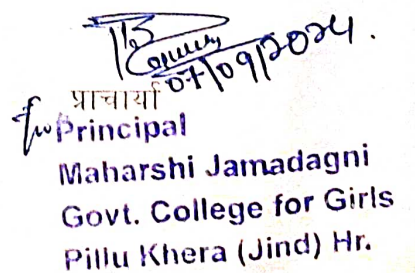 07/09/2024.
प्राचार्या
for Principal
Maharshi Jamadagni
Govt. College for Girls
Pillu Khera (Jind) Hr.